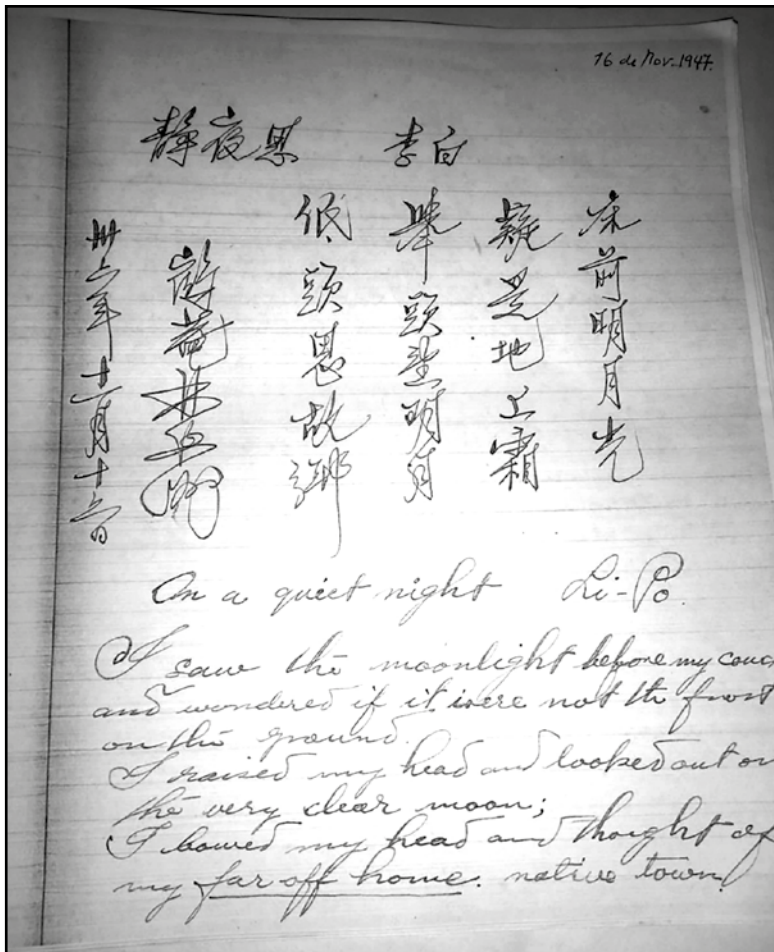 16 de Nov. 1947.
靜夜思 李白
床前明月光
疑是地上霜
舉頭望明月
低頭思故鄉
卅六年十一月十六日
On a quiet night Li-Po.
I saw the moonlight before my couc
and wondered if it were not the frost
on the ground.
I raised my head and looked out on
the very clear moon;
I bowed my head and thought of
my far off home. native town